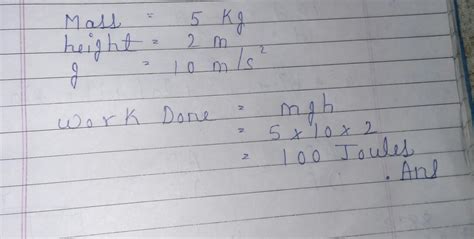 Mass = 5 Kg
height = 2 m
g = 10 m/s²
Work Done = mgh
= 5 x 10 x 2
= 100 Joules
. Ans